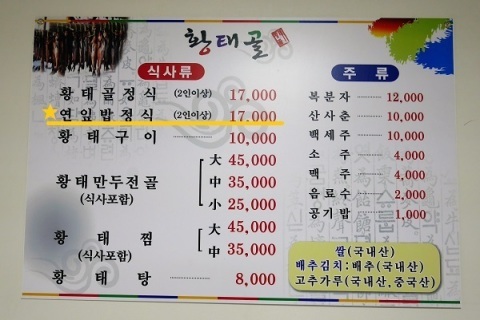 황태골
식사류
황태골정식 (2인이상) 17,000
연잎밥정식 (2인이상) 17,000
황태구이 10,000
황태만두전골 (식사포함) 大 45,000
中 35,000
小 25,000
황태찜 (식사포함) 大 45,000
中 35,000
황태탕 8,000
주류
복분자 12,000
산사춘 10,000
백세주 10,000
소주 4,000
맥주 4,000
음료수 2,000
공기밥 1,000
쌀(국내산)
배추김치:배추(국내산)
고추가루(국내산,중국산)